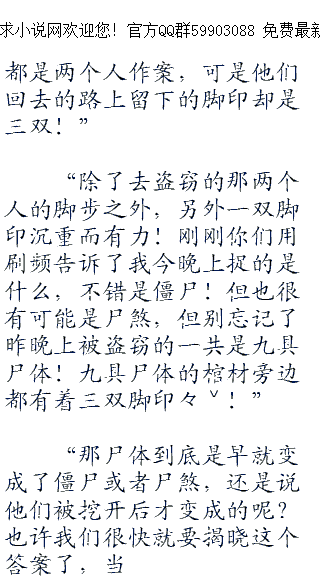 求小说网欢迎您！官方QQ群59903088 免费最新
都是两个人作案，可是他们
回去的路上留下的脚印却是
三双！”
“除了去盗窃的那两个
人的脚步之外，另外一双脚
印沉重而有力！刚刚你们用
刷频告诉了我今晚上捉的是
什么，不错是僵尸！但也很
有可能是尸煞，但别忘记了
昨晚上被盗窃的一共是九具
尸体！九具尸体的棺材旁边
都有着三双脚印々ˇ！”
“那尸体到底是早就变
成了僵尸或者尸煞，还是说
他们被挖开后才变成的呢？
也许我们很快就要揭晓这个
答案了，当